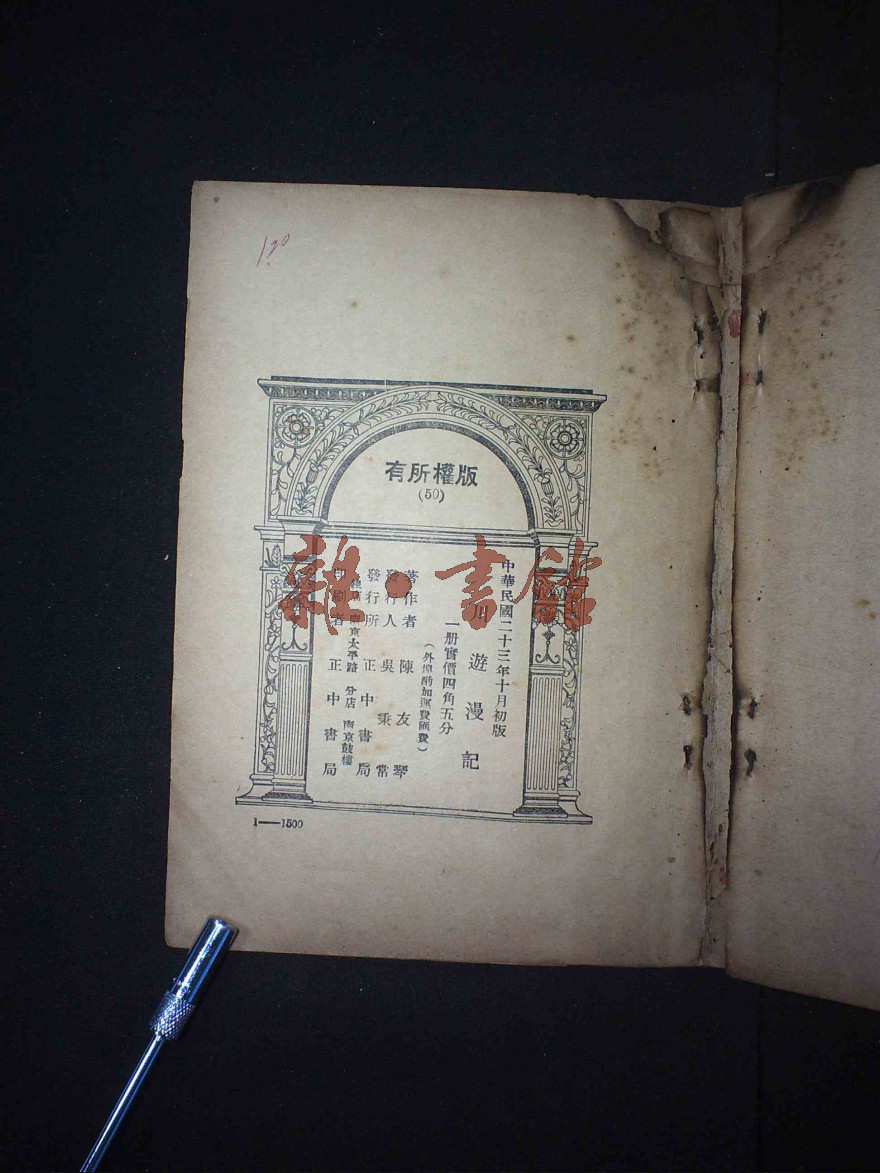 130
有所權版
(50)
中華民國二十三年十月初版
川遊漫記
一册實價四角五分
(外埠酌加運費匯費)
著作者 陳友琴
發行人 吳秉常
發行所 正中書局
南京太平路 分店 南京鼓樓
印刷者 正中書局
1——1500
雜·書館